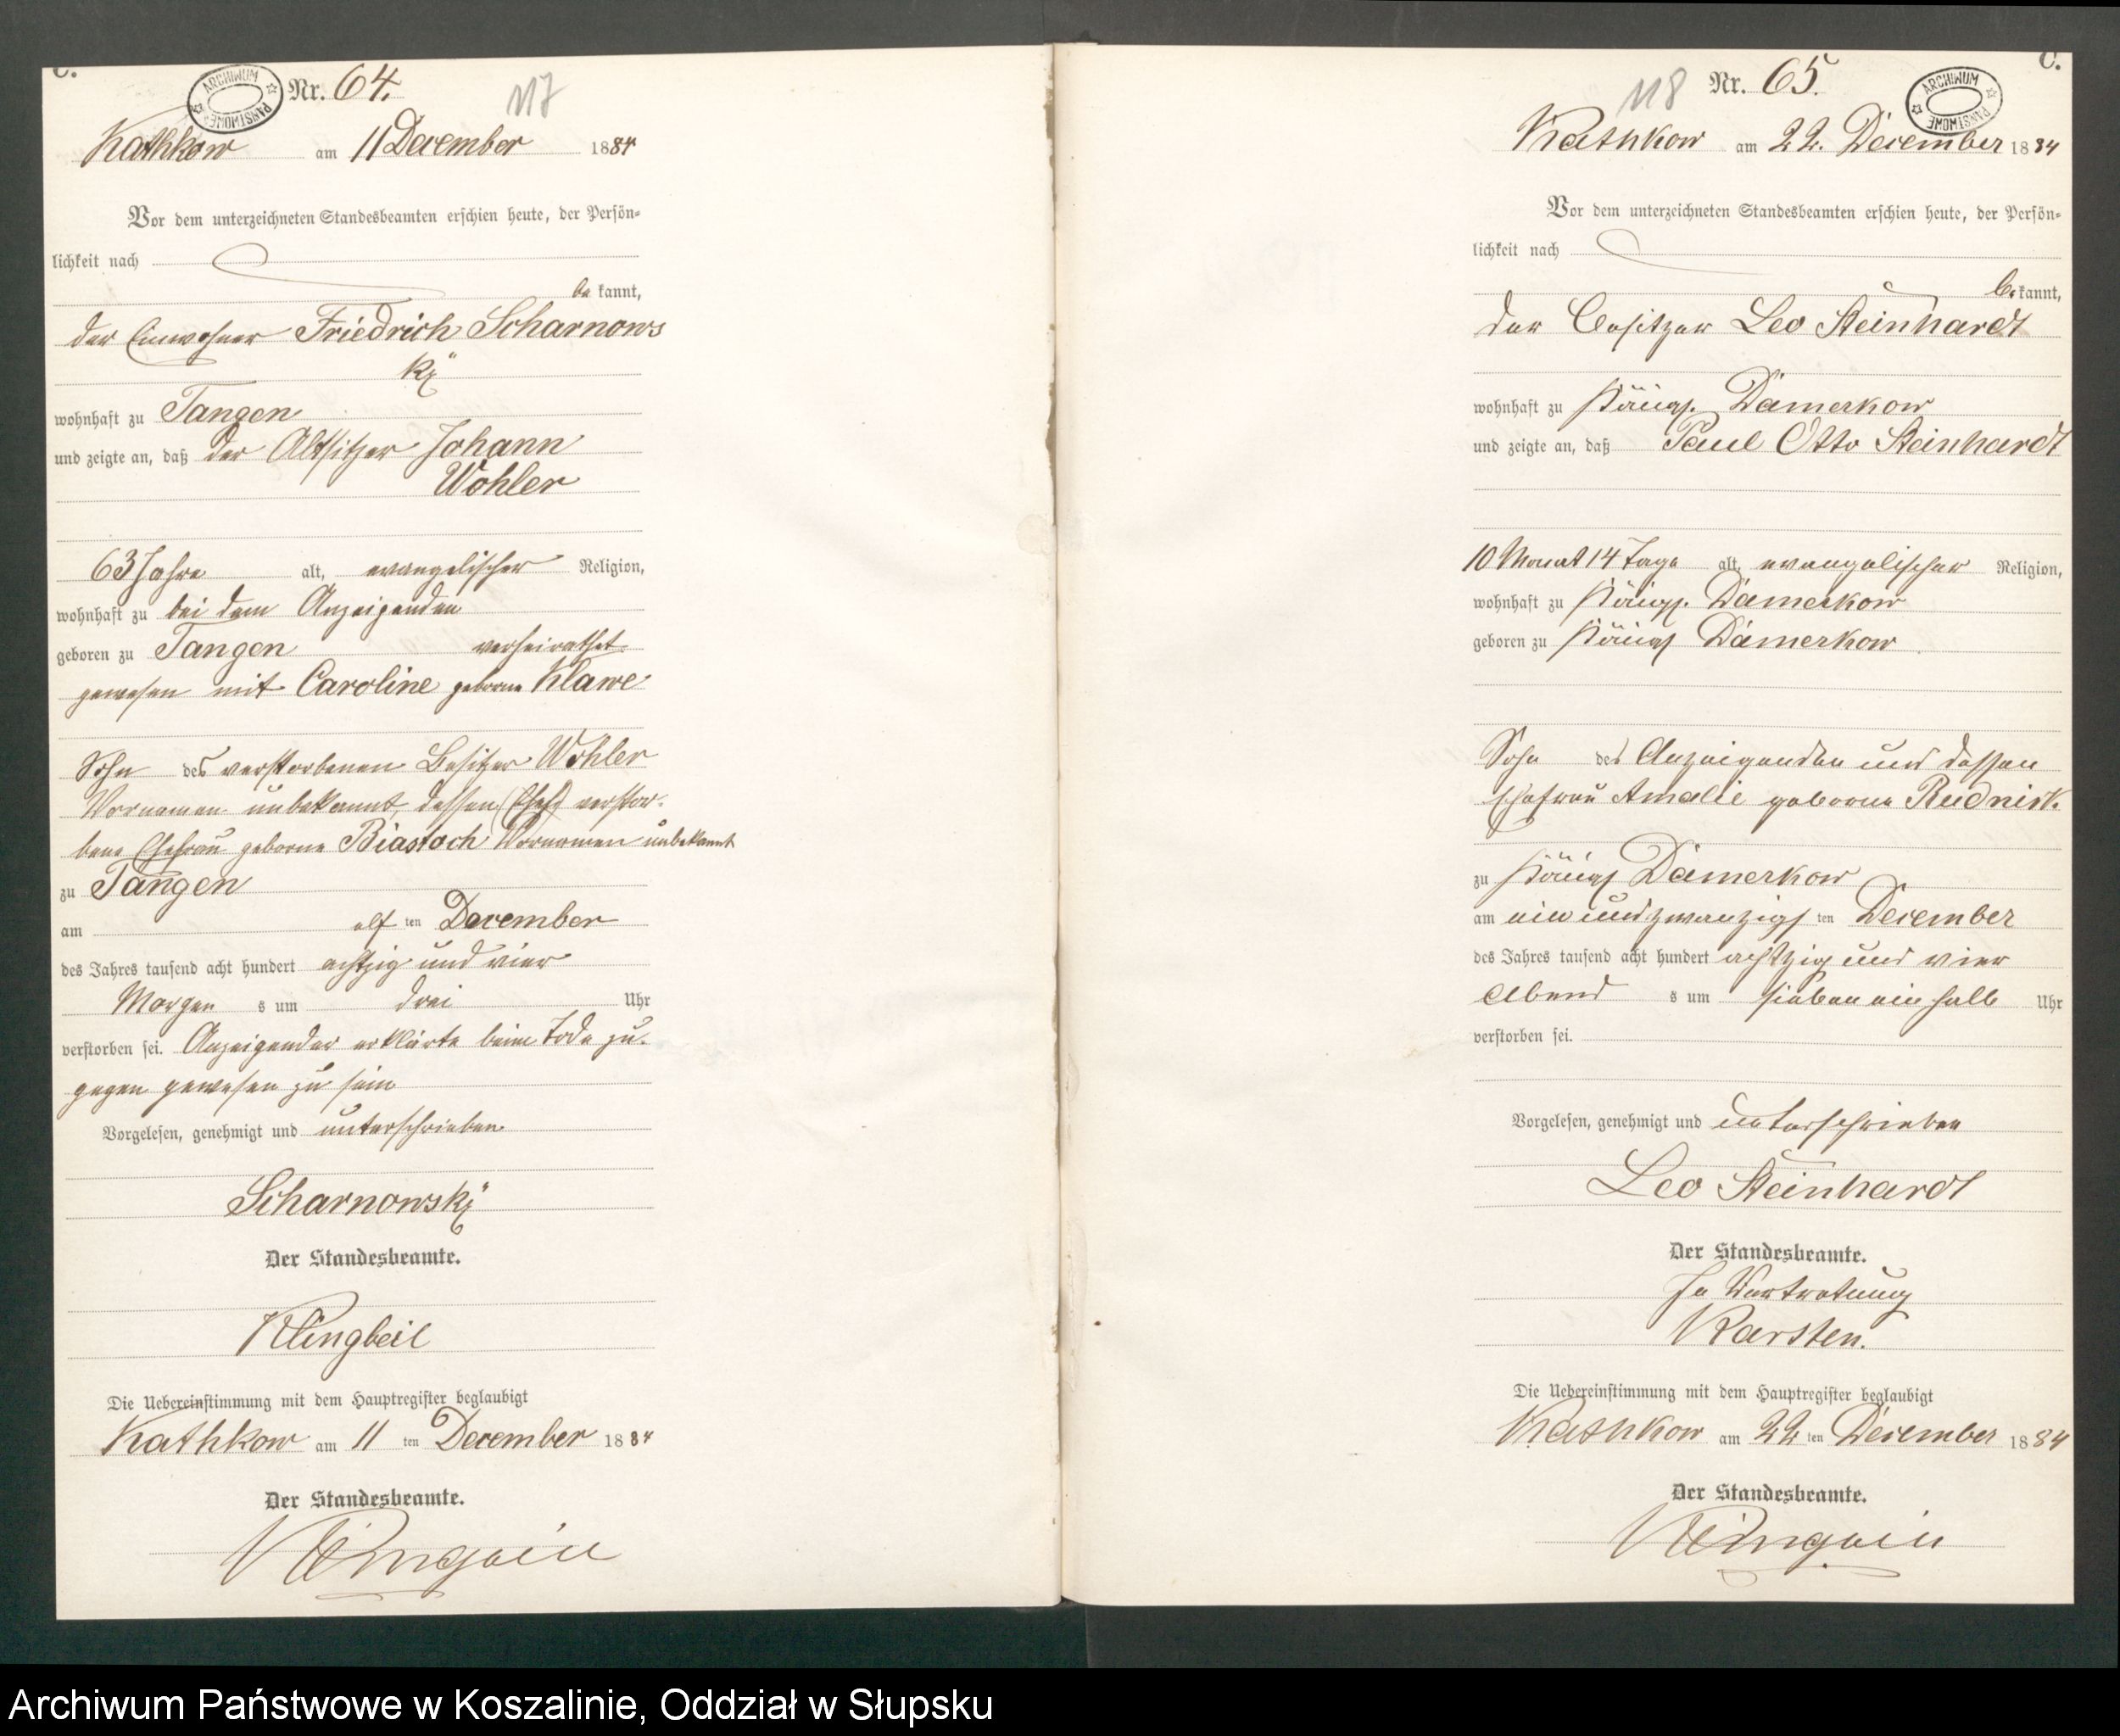 C.
ARCHIWUM PAŃSTWOWE
Nr. 64.
117
Kathkow am 11 December 1884
Vor dem unterzeichneten Standesbeamten erschien heute, der Persön-
lichkeit nach
be kannt,
der Einwohner Friedrich Scharnows
ki
wohnhaft zu Tangen
und zeigte an, daß der Altsitzer Johann
Wohler
63 Jahre alt, evangelischer Religion,
wohnhaft zu bei dem Anzeigenden
geboren zu Tangen verheirathet
gewesen mit Caroline geborne Klawe
Sohn des verstorbenen Besitzer Wohler
Vornamen unbekannt, dessen verstor-
bene Ehefrau geborne Biastoch Vornamen unbekannt
zu Tangen
am elf ten December
des Jahres tausend acht hundert achtzig und vier
Morgen s um drei Uhr
verstorben sei. Anzeigender erklärte beim Tode zu-
gegen gewesen zu sein
Vorgelesen, genehmigt und unterschrieben
Scharnowski
Der Standesbeamte.
Klingbeil
Die Uebereinstimmung mit dem Hauptregister beglaubigt
Kathkow am 11 ten December 1884
Der Standesbeamte.
Klingbeil
C.
118
Nr. 65.
ARCHIWUM PAŃSTWOWE
Kathkow am 22. December 1884
Vor dem unterzeichneten Standesbeamten erschien heute, der Persön-
lichkeit nach
be kannt,
der Besitzer Leo Steinhardt
wohnhaft zu Königl. Dämerkow
und zeigte an, daß Paul Otto Steinhardt
10 Monat 14 Tage alt, evangelischer Religion,
wohnhaft zu Königl. Dämerkow
geboren zu Königl Dämerkow
Sohn des Anzeigenden und dessen
Ehefrau Amalie geborne Rudnick
zu Königl Dämerkow
am ein und zwanzigs ten December
des Jahres tausend acht hundert achtzig und vier
Abend s um sieben ein halb Uhr
verstorben sei.
Vorgelesen, genehmigt und unterschrieben
Leo Steinhardt
Der Standesbeamte.
In Vertretung
Karsten.
Die Uebereinstimmung mit dem Hauptregister beglaubigt
Kathkow am 22 ten December 1884
Der Standesbeamte.
Klingbeil
Archiwum Państwowe w Koszalinie, Oddział w Słupsku